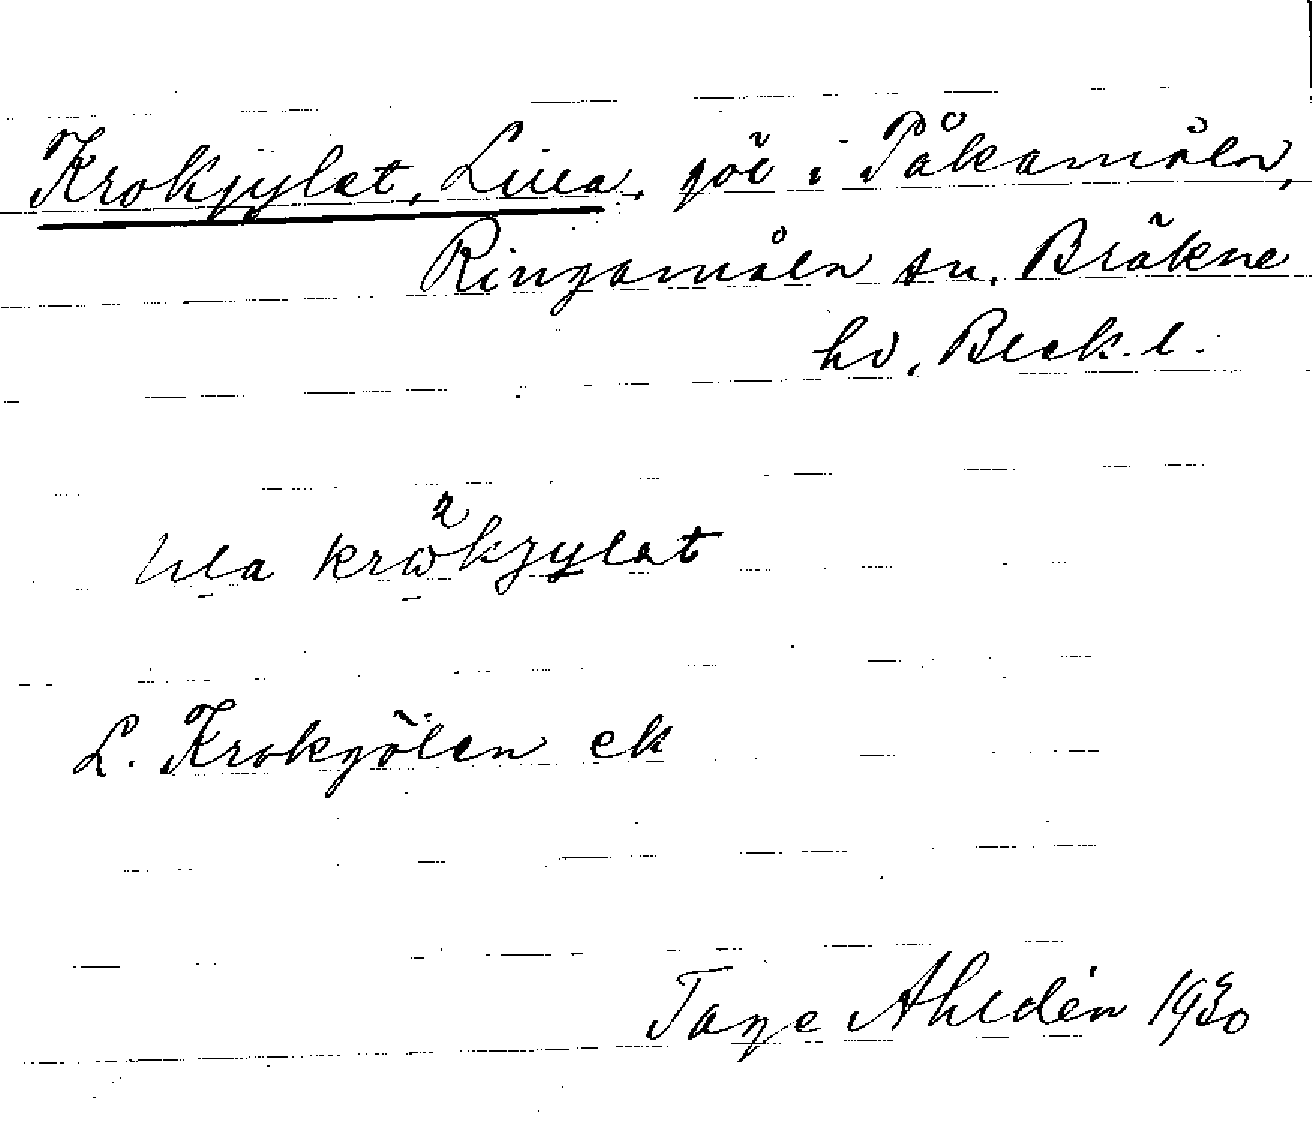 Krokjylet, Lilla, göl i Påkamåla,
Ringamåla sn. Bräkne
hd, Blek.l.
L. Krokgölen ek
Tage Ahldén 1930